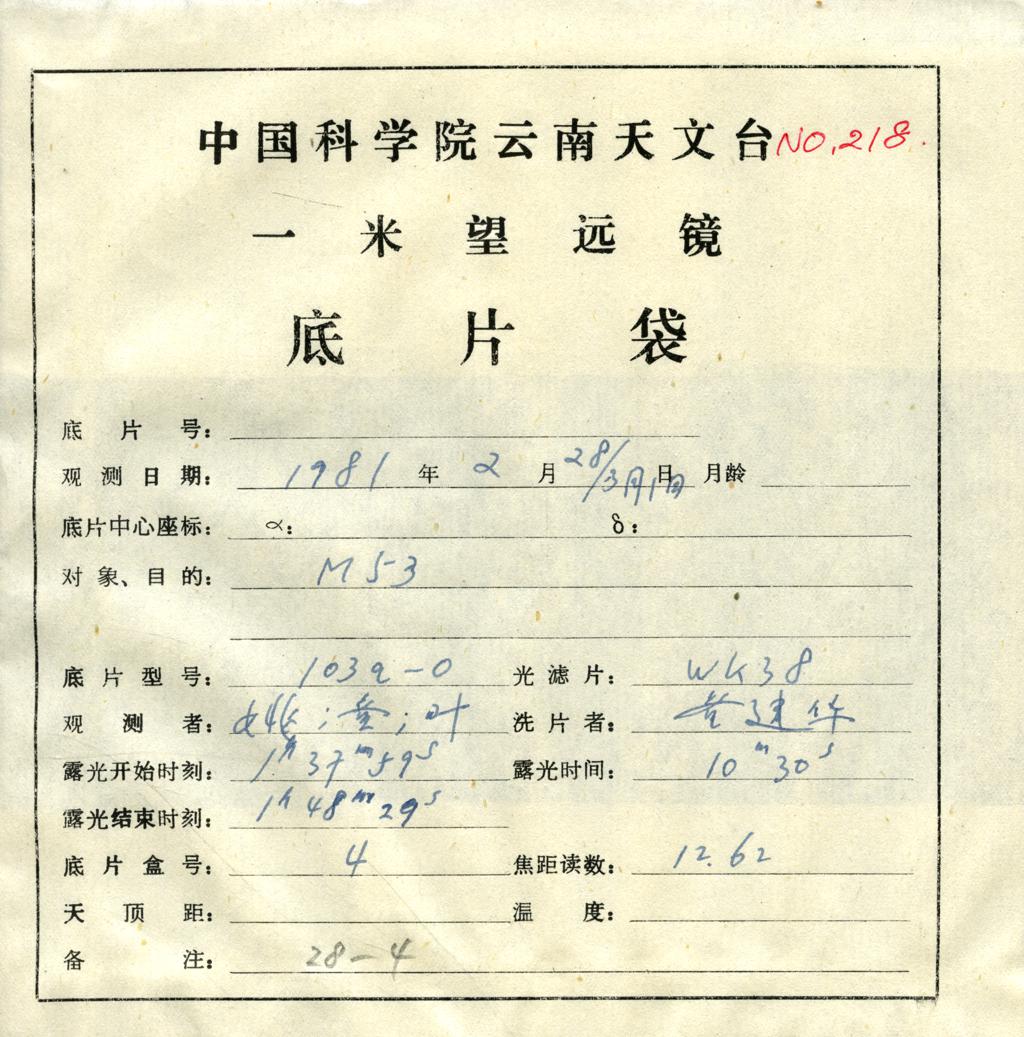 中国科学院云南天文台 NO.218.
一米望远镜
底片袋
底片号:
观测日期: 1981 年 2 月 28/3月1日 日 月龄
底片中心座标: α: δ:
对象、目的: M53
底片型号: 103a-O 光滤片: WK38
观测者: ; ; 叶 洗片者: 建华
露光开始时刻: 1h 37m 59s 露光时间: 10m 30s
露光结束时刻: 1h 48m 29s
底片盒号: 4 焦距读数: 12.62
天顶距: 温度:
备注: 28-4